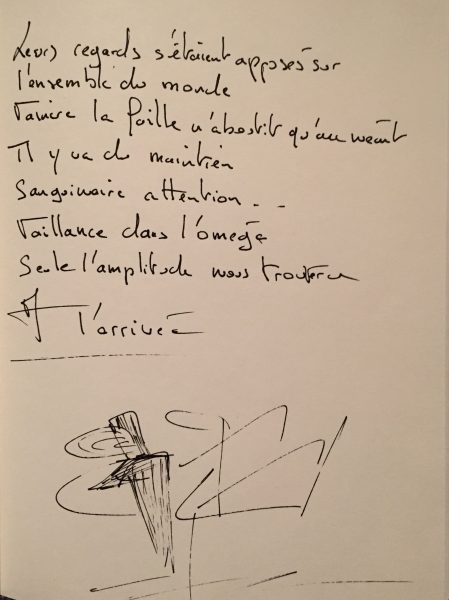 Leurs regards s'étaient apposés sur
l'ensemble du monde
la faille n'aboutit qu'au néant
Il y va du maintien
Sanguinaire attention . . .
Vaillance dans l'omega
Seule l'amplitude nous trouvera
A l'arrivée